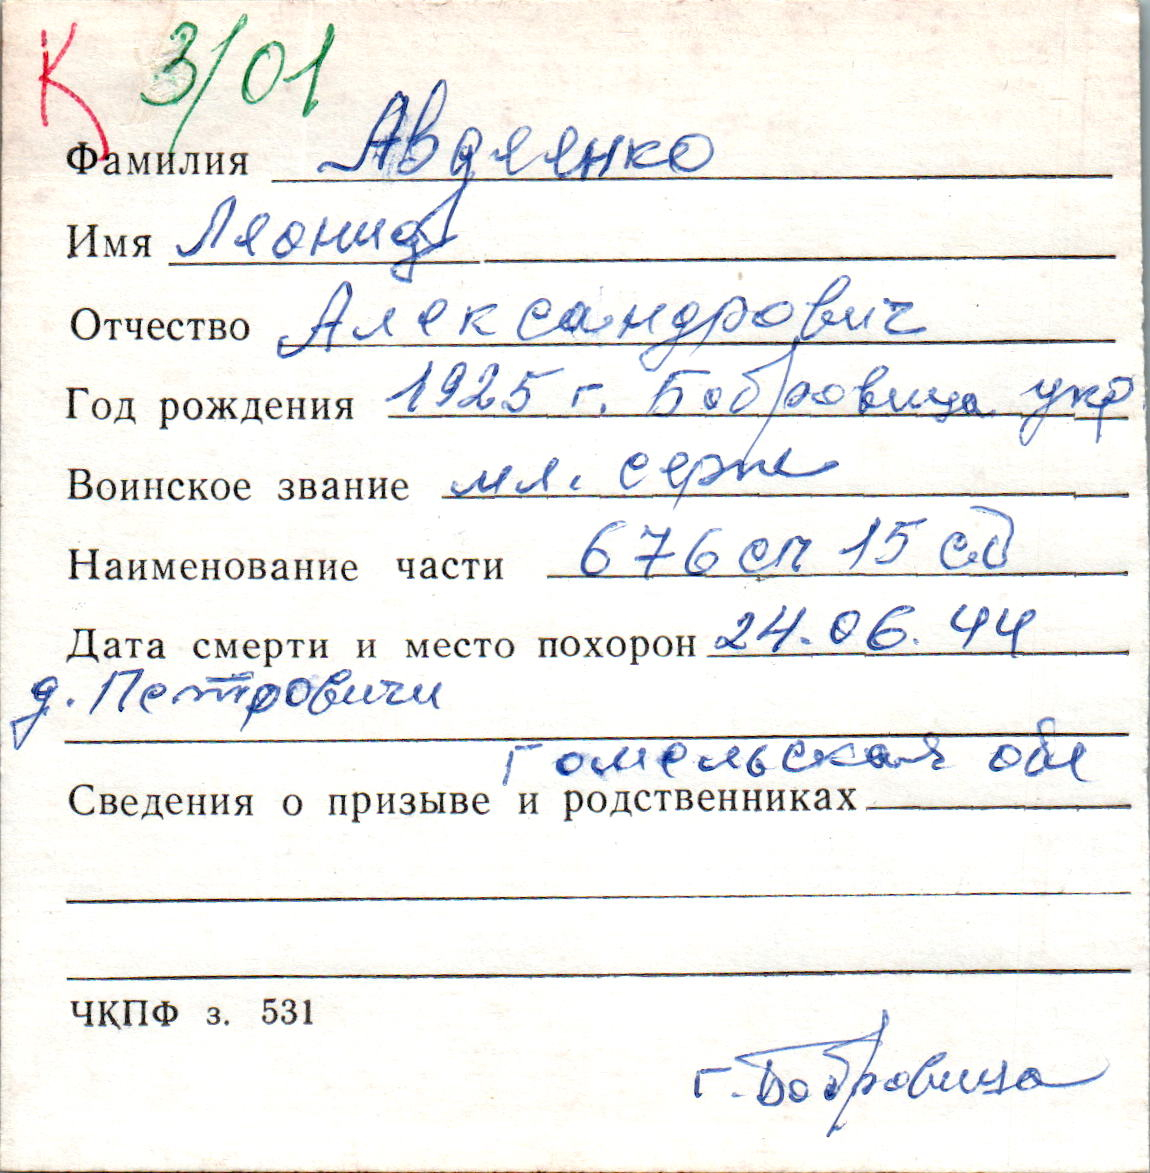 К 3/01
Фамилия Авдеенко
Имя Леонид
Отчество Александрович
Год рождения 1925 г. Бобровица укр
Воинское звание мл. серж
Наименование части 676 сп 15 сд
Дата смерти и место похорон 24.06.44
д. Петровичи
Гомельская обл
Сведения о призыве и родственниках
ЧКПФ з. 531
г. Бобровица